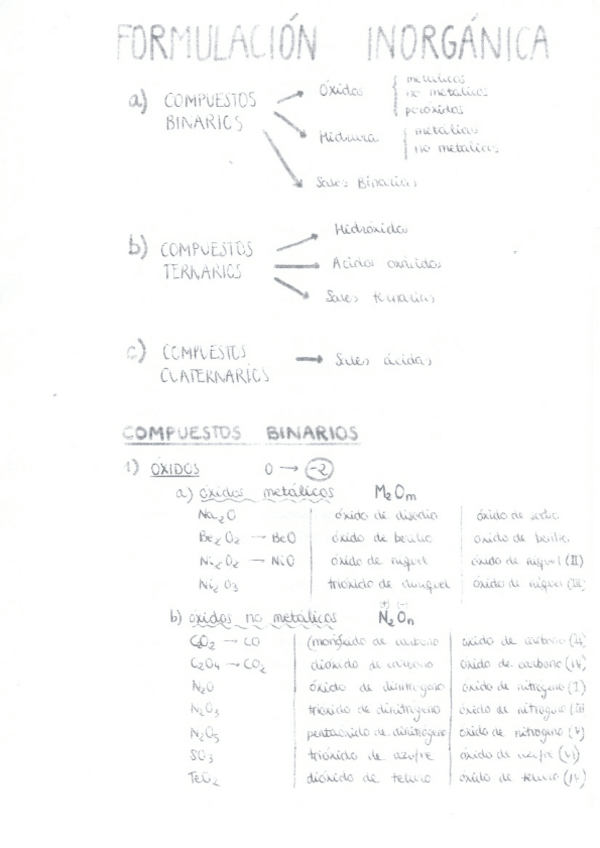 FORMULACIÓN INORGÁNICA
a) COMPUESTOS BINARIOS
Óxidos
metálicos
no metálicos
peróxidos
Hidruros
metálicos
no metálicos
Sales Binarias
b) COMPUESTOS TERNARIOS
Hidróxidos
Acidos oxácidos
Sales ternarias
c) COMPUESTOS CUATERNARIOS → Sales ácidas
COMPUESTOS BINARIOS
1) OXIDOS O → -2
a) óxidos metálicos M₂Om
Na₂O óxido de disodio óxido de sodio
Be₂O₂ → BeO óxido de berilio óxido de berilio
Ni₂O₂ → NiO óxido de níquel óxido de níquel (II)
Ni₂O₃ trióxido de diniquel óxido de níquel (III)
b) óxidos no metálicos N₂On
C₂O₂ → CO (mon)óxido de carbono óxido de carbono (II)
C₂O₄ → CO₂ dióxido de carbono óxido de carbono (IV)
N₂O óxido de dinitrógeno óxido de nitrógeno (I)
N₂O₃ trióxido de dinitrógeno óxido de nitrógeno (III
N₂O₅ pentaóxido de dinitrógeno óxido de nitrógeno (V)
SO₃ trióxido de azufre óxido de azufre (VI)
TeO₂ dióxido de teluro óxido de teluro (IV)